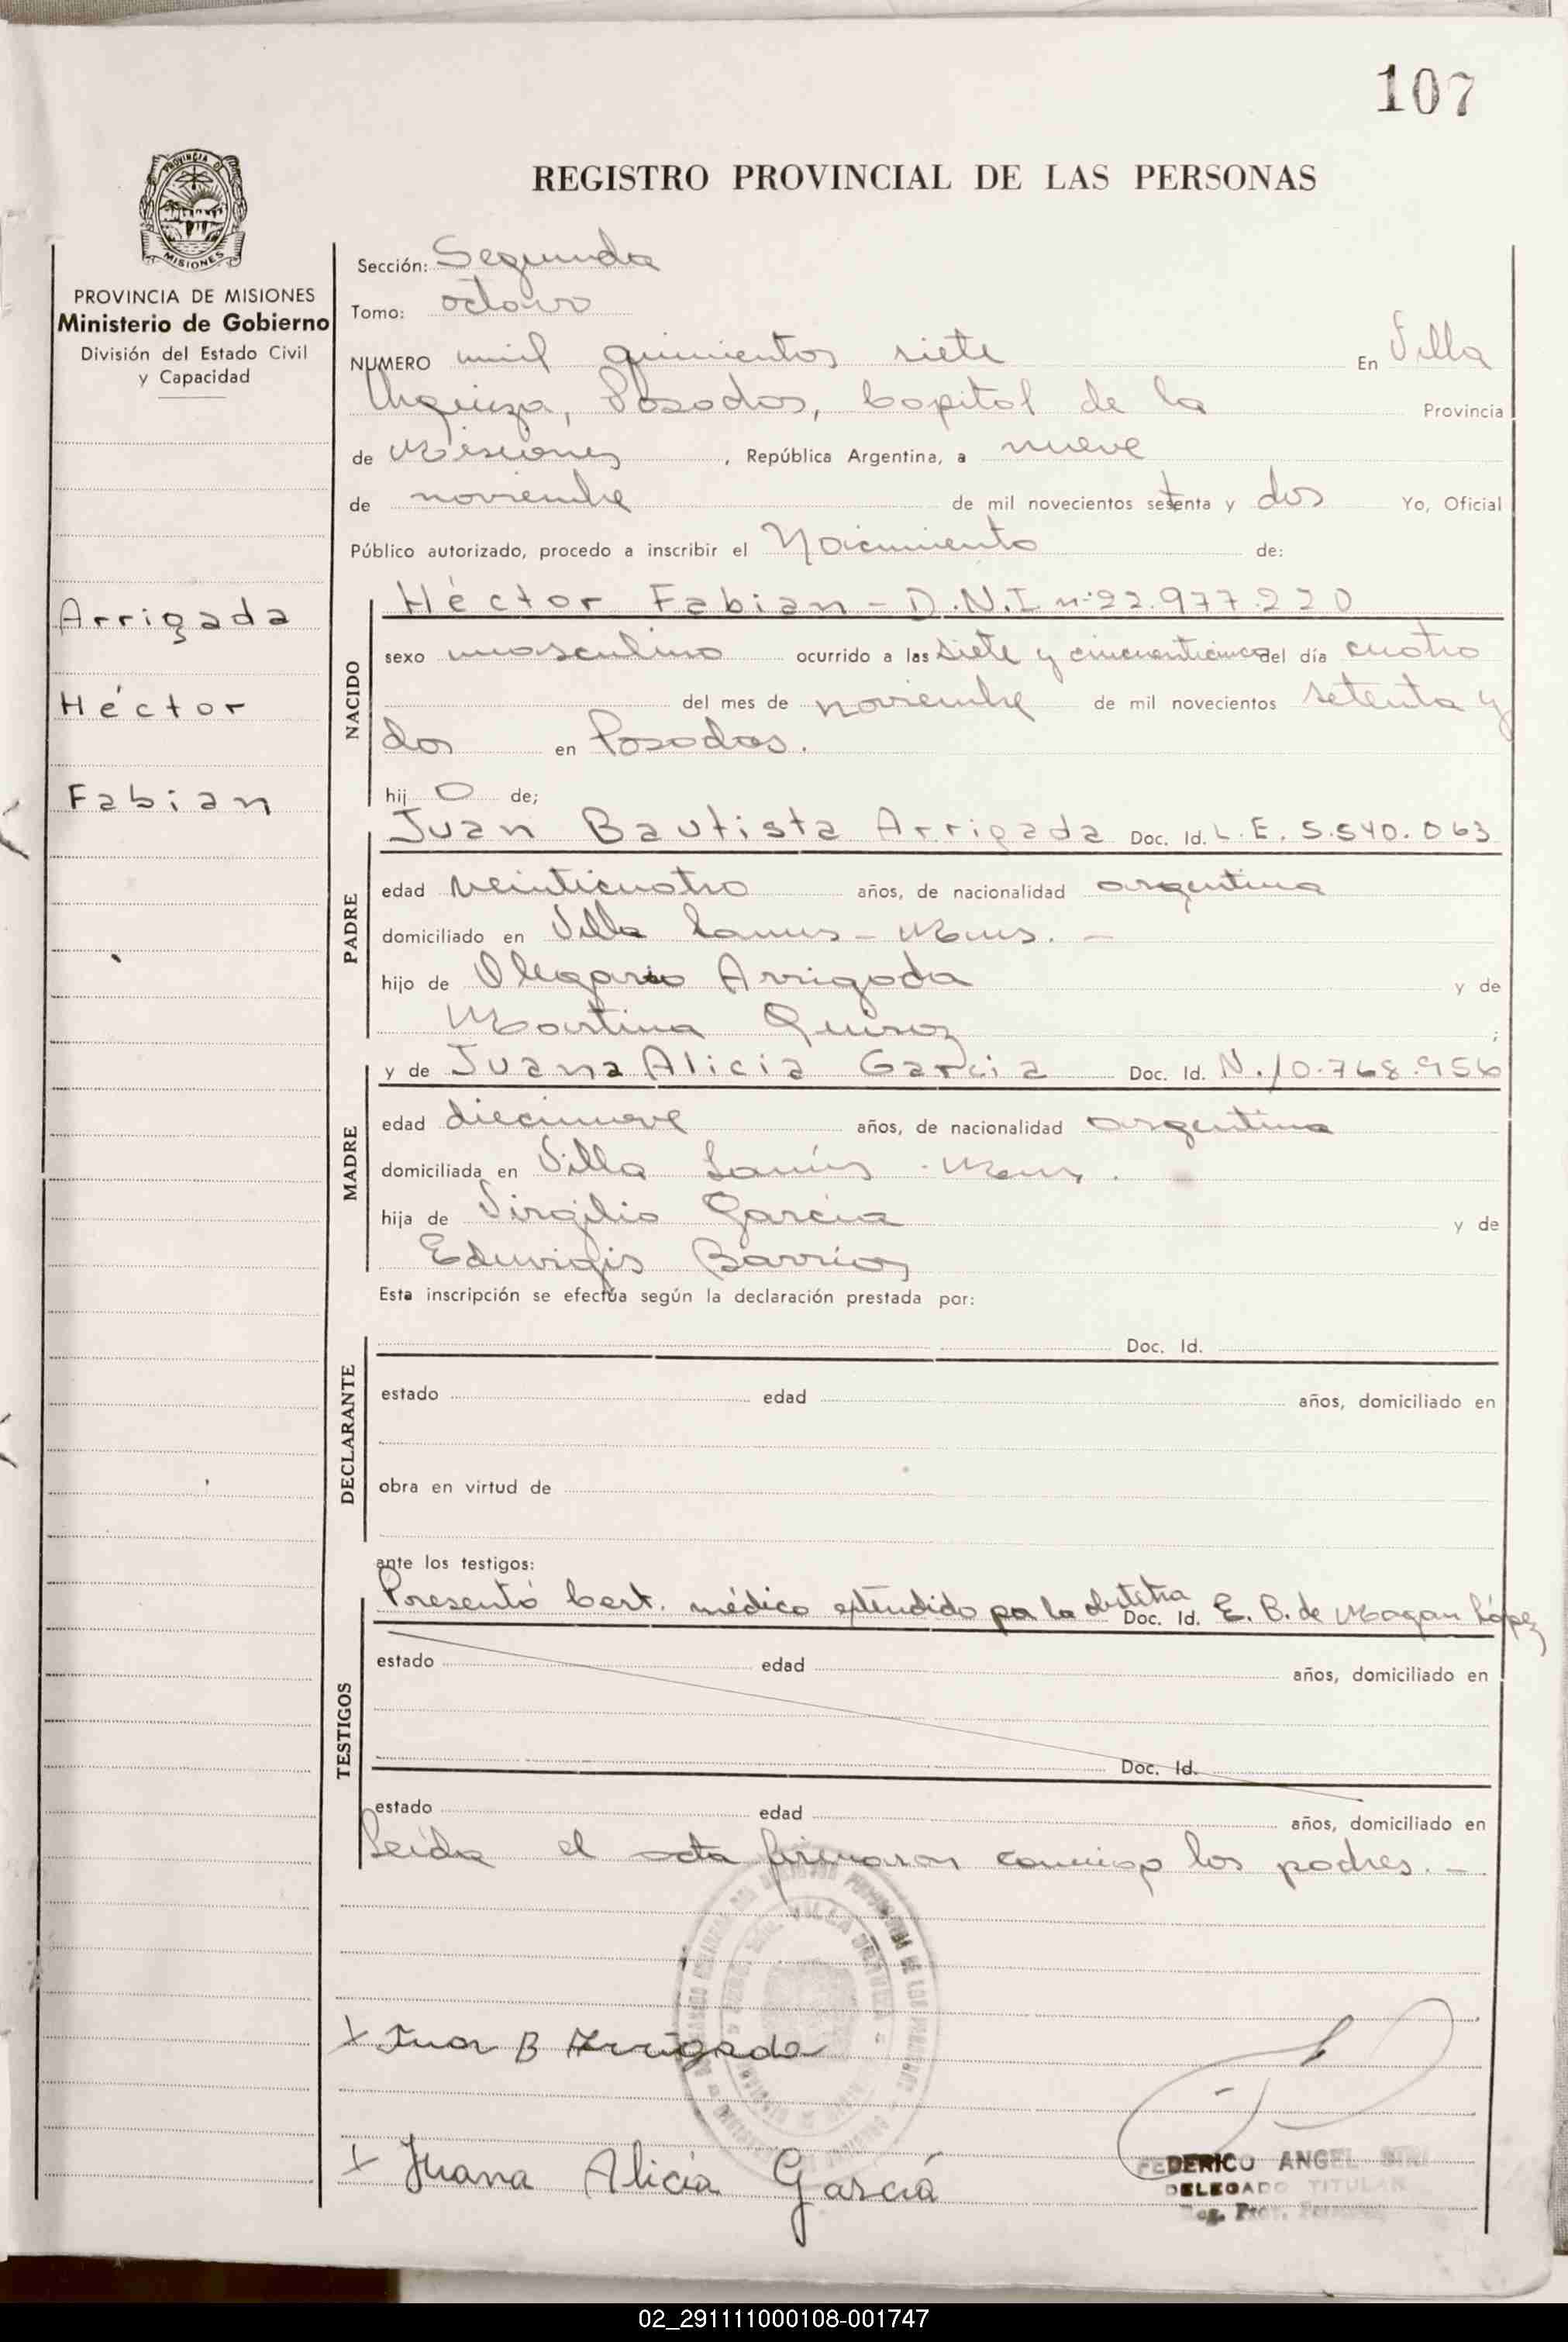 107
REGISTRO PROVINCIAL DE LAS PERSONAS
PROVINCIA DE MISIONES
Ministerio de Gobierno
División del Estado Civil
y Capacidad
Arrigada
Héctor
Fabian
Sección: Segunda
Tomo: octavo
NUMERO mil quinientos siete En Villa
Urquiza, Posadas, Capital de la Provincia
de Misiones, República Argentina, a nueve
de noviembre de mil novecientos setenta y dos Yo, Oficial
Público autorizado, procedo a inscribir el Nacimiento de:
NACIDO
Héctor Fabian - D.N.I. nº 22.977.220
sexo masculino ocurrido a las siete y cincuenticinco del día cuatro
del mes de noviembre de mil novecientos setenta y
dos en Posadas.
hij o de;
PADRE
Juan Bautista Arrigada Doc. Id. L.E. 5.540.063
edad veinticuatro años, de nacionalidad argentina
domiciliado en Villa Lanus - Mnes. -
hijo de Olegario Arrigada y de
Martina Quiroz ;
MADRE
y de Juana Alicia Garcia Doc. Id. N. 10.768.956
edad diecinueve años, de nacionalidad argentina
domiciliada en Villa Lanús - Mnes.
hija de Virgilio Garcia y de
Eduvigis Barrios
Esta inscripción se efectúa según la declaración prestada por:
DECLARANTE
Doc. Id.
estado edad años, domiciliado en
obra en virtud de
ante los testigos:
TESTIGOS
Presentó Cert. médico extendido por la obstetra Doc. Id. E. B. de Magan López
estado edad años, domiciliado en
Doc. Id.
estado edad años, domiciliado en
Leida el acta firmaron conmigo los padres. -
x Juan B Arrigada
x Juana Alicia García
FEDERICO ANGEL
DELEGADO TITULAR
Reg. Prov.
02_291111000108-001747